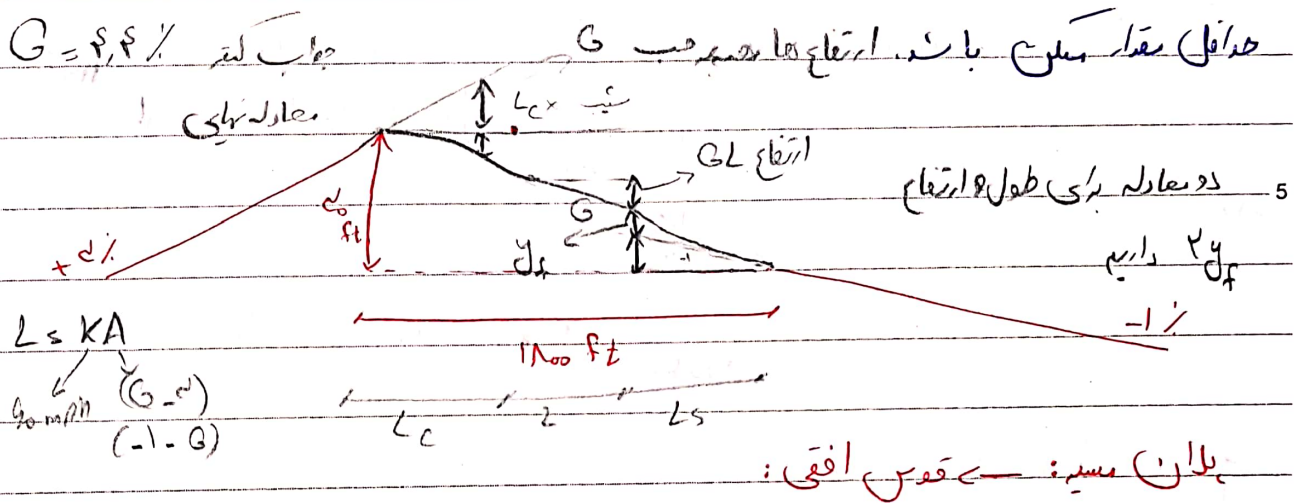 حداقل مقدار ممکن باشد. ارتفاع ها برحسب G جواب آخر G = ۴٫۴ ٪
معادله نهایی
شیب
Lc
ارتفاع GL
G
دو معادله برای طول و ارتفاع
داریم 2yf
5
۵۰ ft
yf
+ ۵٪
-۱ ٪
۱۸۰۰ ft
L = KA
۶۰ mph
(G - ۵)
(-۱ - G)
Lc
L
Ls
پلان مسیر: → قوس افقی: